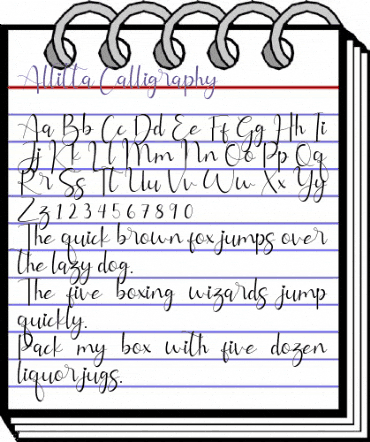 Allitta Calligraphy
Aa Bb Cc Dd Ee Ff Gg Hh Ii
Jj Kk Ll Mm Nn Oo Pp Qq
Rr Ss Tt Uu Vv Ww Xx Yy
Zz 1 2 3 4 5 6 7 8 9 0
The quick brown fox jumps over
the lazy dog.
The five boxing wizards jump
quickly.
Pack my box with five dozen
liquor jugs.